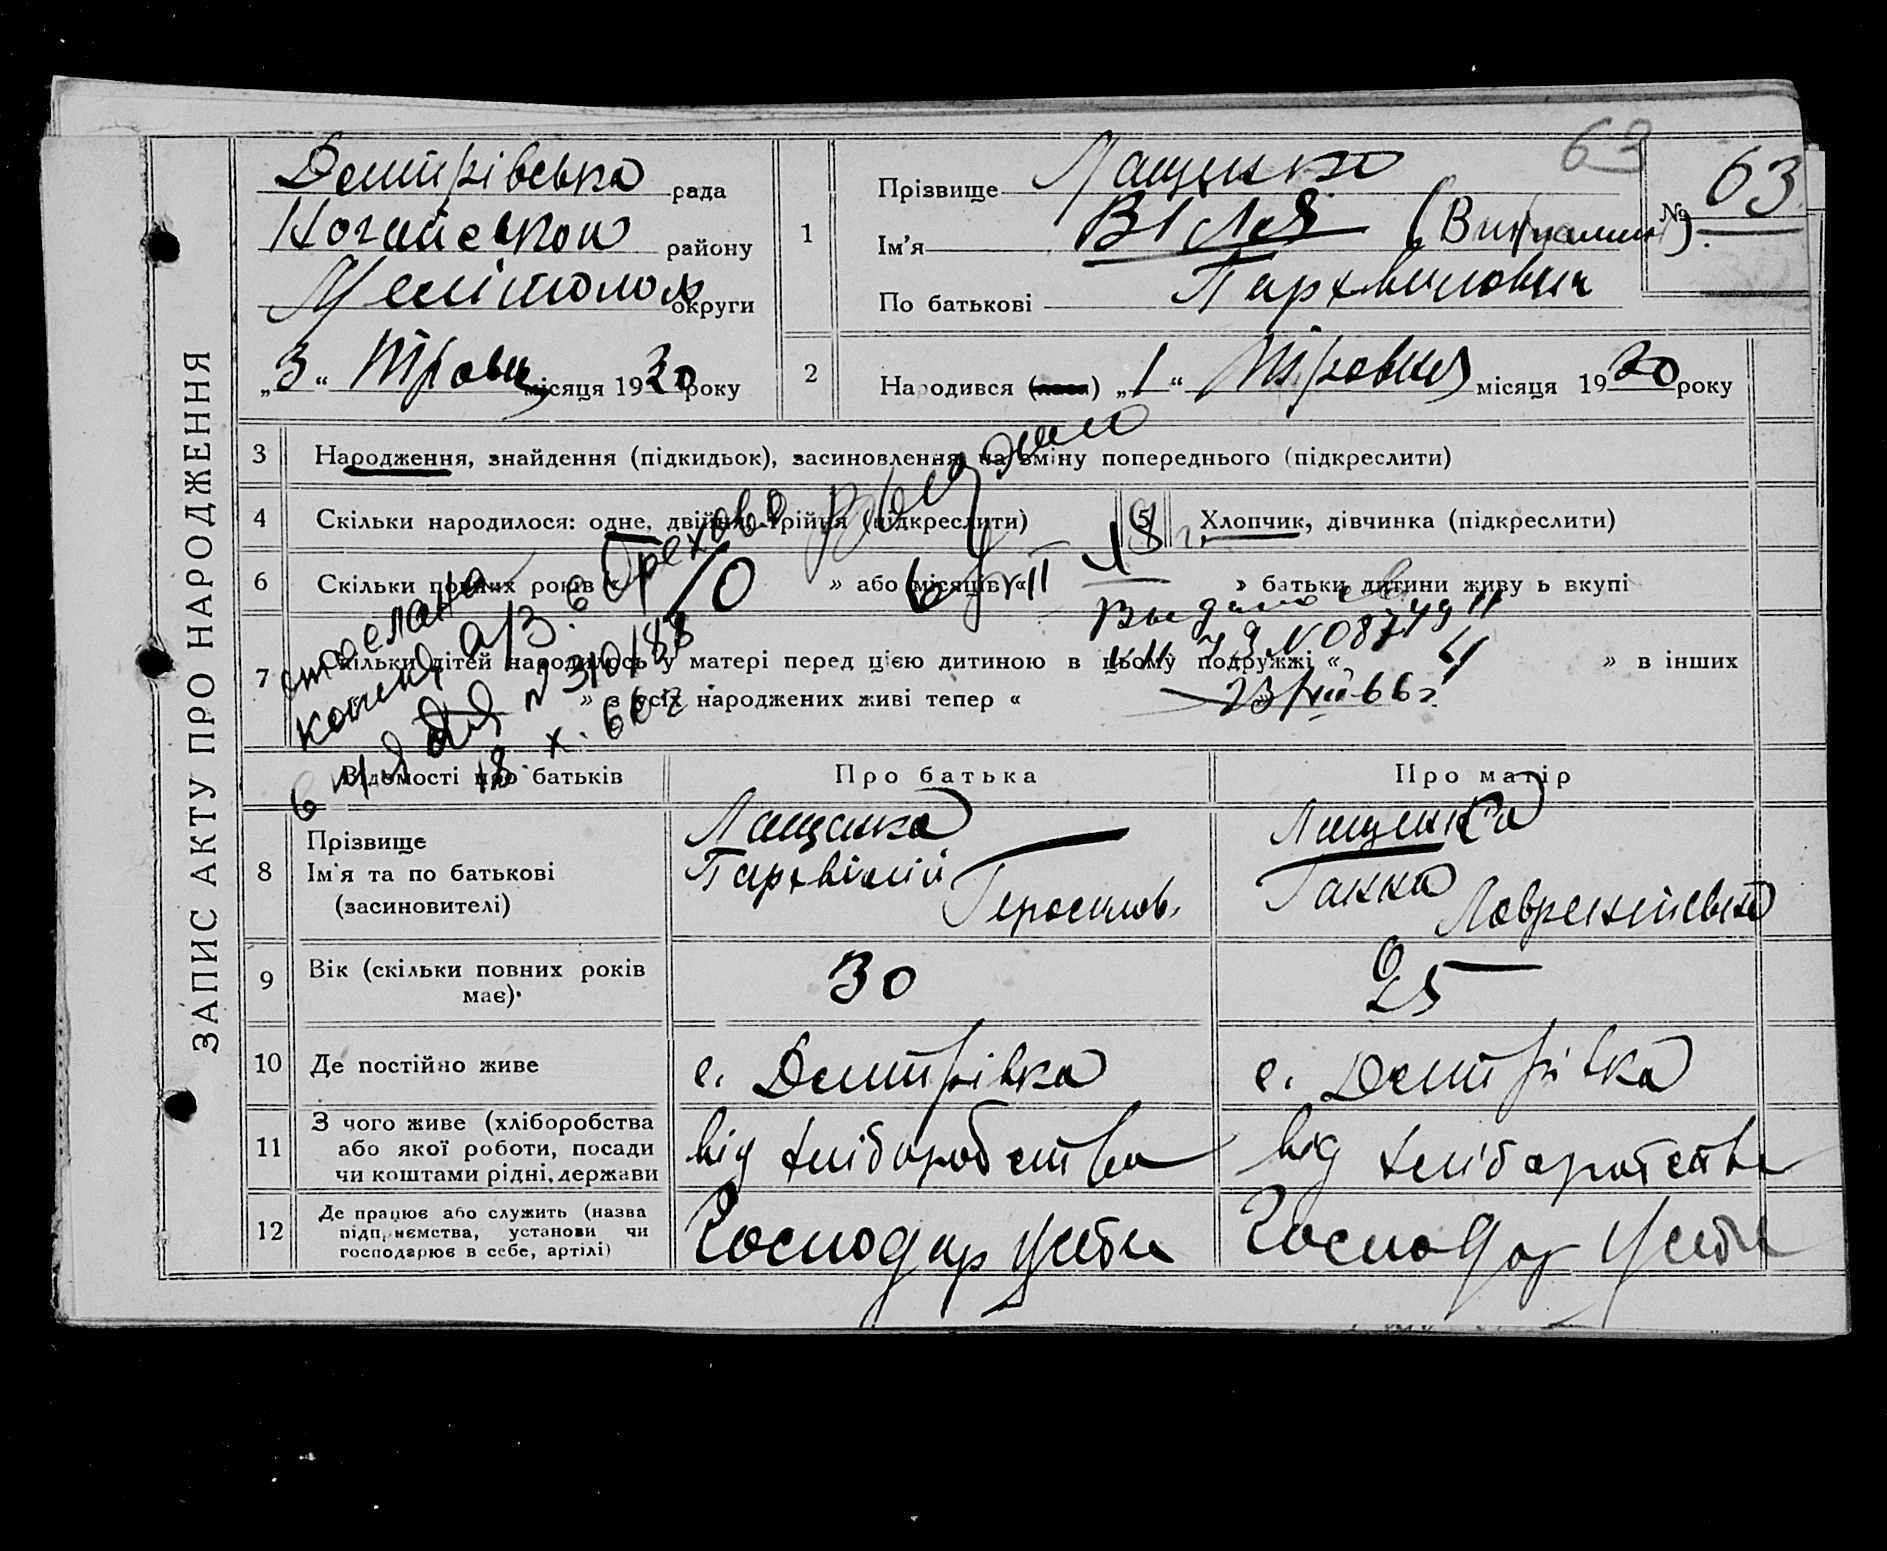 ЗАПИС АКТУ ПРО НАРОДЖЕННЯ
63
№ 63
Демитрівська рада
Ногайської району
Мелітопол округи
„3“ Травня місяця 1930 року
1
Прізвище Лащенко
Ім'я Віля (Виталий)
По батькові
2
Народився (лася) „1“ Травня місяця 1930 року
3 Народження, знайдення (підкидьок), засиновлення на зміну попереднього (підкреслити)
4 Скільки народилося: одне, двійня, трійня (підкреслити)
5 Хлопчик, дівчинка (підкреслити)
6 Скільки повних років « 10 » або місяців « » батьки дитини живуть вкупі
7 Скільки дітей народилось у матері перед цією дитиною в цьому подружжі « » в інших
» з усіх народжених живі тепер «
отослана
копия а/з. в Орехово
№ 310/88
18. X. 66 г
Выдано
Выдано св
ЯЯ № 087494
23/VIII-66 г.
Відомості про батьків
Про батька
Про матір
8
Прізвище
Ім'я та по батькові
(засиновителі)
Лащенко
Лащенко
Ганна
9
Вік (скільки повних років
має)
30
25
10 Де постійно живе
с. Демитрівка
с. Демитрівка
11
З чого живе (хліборобства
або якої роботи, посади
чи коштами рідні, держави
від хліборобства
від хліборобства
12
Де працює або служить (назва
підприємства, установи чи
господарює в себе, артілі)
Господар у себе
Господар у себе